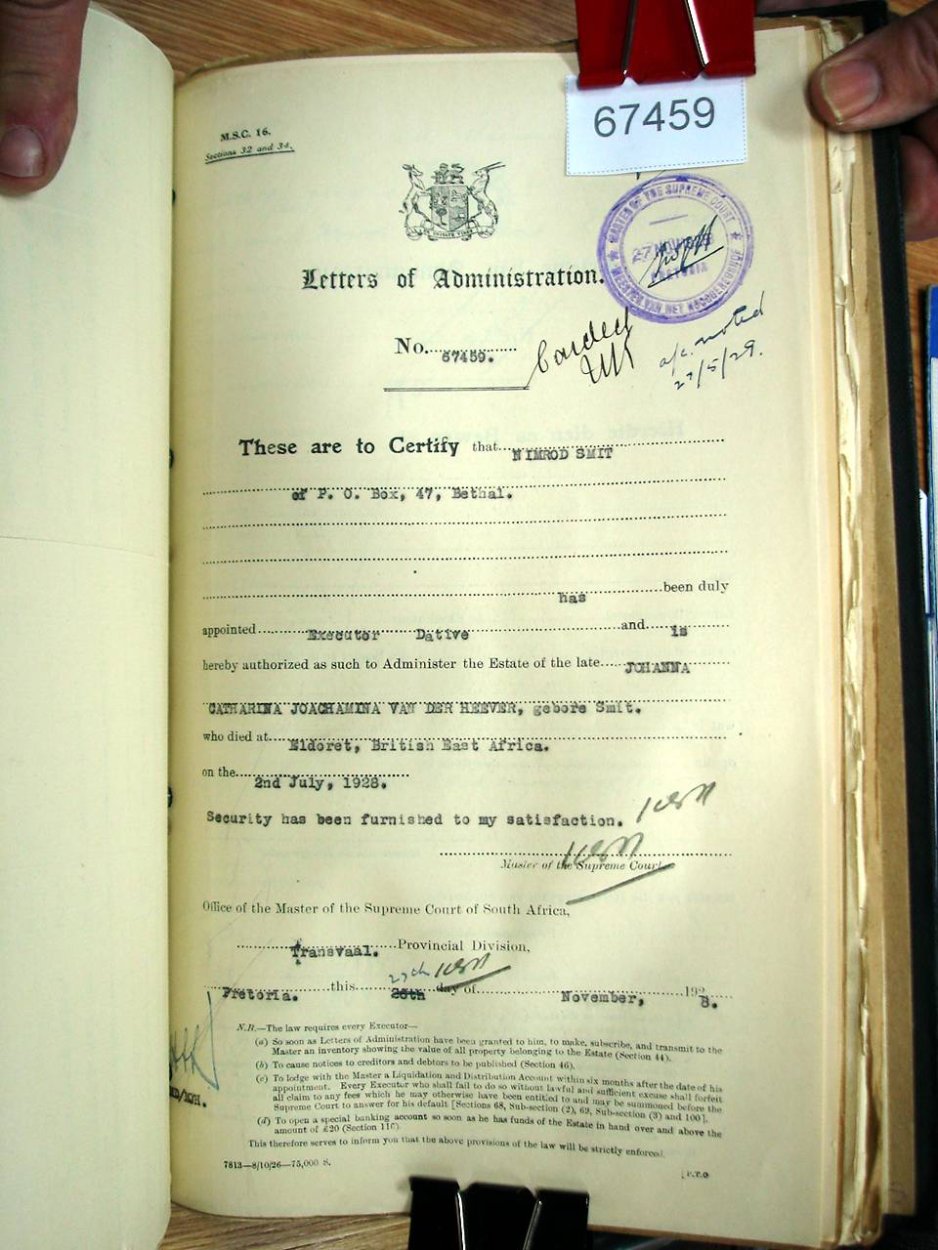 67459
M.S.C. 16.
Sections 32 and 34.
MASTER OF THE SUPREME COURT
27 NOV
PRETORIA
MEESTER VAN HET HOOGGERECHTSHOF
Letters of Administration.
No. 67459.
Carded
a/c. noted
27/5/29.
These are to Certify that NIMROD SMIT
of P. O. Box, 47, Bethal.
has been duly
appointed Executor Dative and is
hereby authorized as such to Administer the Estate of the late JOHANNA
CATHARINA JOACHAMINA VAN DER HEEVER, gebore Smit.
who died at Eldoret, British East Africa.
on the 2nd July, 1928.
Security has been furnished to my satisfaction.
Master of the Supreme Court.
Office of the Master of the Supreme Court of South Africa,
Transvaal. Provincial Division,
27th
Pretoria. this 26th day of November, 1928.
N.B.—The law requires every Executor—
(a) So soon as Letters of Administration have been granted to him, to make, subscribe, and transmit to the
Master an inventory showing the value of all property belonging to the Estate (Section 44).
(b) To cause notices to creditors and debtors to be published (Section 46).
(c) To lodge with the Master a Liquidation and Distribution Account within six months after the date of his
appointment. Every Executor who shall fail to do so without lawful and sufficient excuse shall forfeit
all claim to any fees which he may otherwise have been entitled to and may be summoned before the
Supreme Court to answer for his default [Sections 68, Sub-section (2), 69, Sub-section (3) and 100].
(d) To open a special banking account so soon as he has funds of the Estate in hand over and above the
amount of £20 (Section 116).
This therefore serves to inform you that the above provisions of the law will be strictly enforced.
7813—8/10/26—75,000 S.
[P.T.O